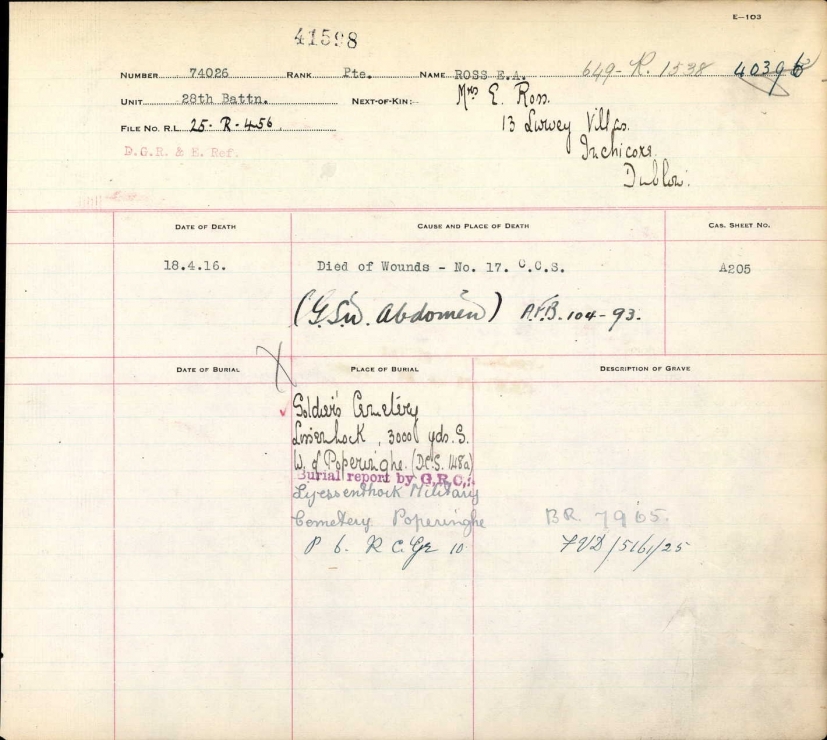 E-103
41598
NUMBER 74026 RANK Pte. NAME ROSS E.A. 649-R.1538 40396
UNIT 28th Battn. NEXT-OF-KIN:- Mrs E. Ross.
FILE NO. R.L. 25-R-456. 13 Villas.
D.G.R. & E. Ref. Inchicore
Dublin.
DATE OF DEATH CAUSE AND PLACE OF DEATH CAS. SHEET NO.
18.4.16. Died of Wounds - No. 17. C.C.S. A205
(G.S.W. Abdomen) A.F.B. 104-93.
DATE OF BURIAL PLACE OF BURIAL DESCRIPTION OF GRAVE
Soldier's Cemetery
Lissenhock, 3000 yds. S.
W. of Poperinghe. (D.C.S. 148a)
Burial report by G.R.C.:
Lyessenthock Military
Cemetery Poperinghe BR. 7965.
P 6. R C. Gr 10